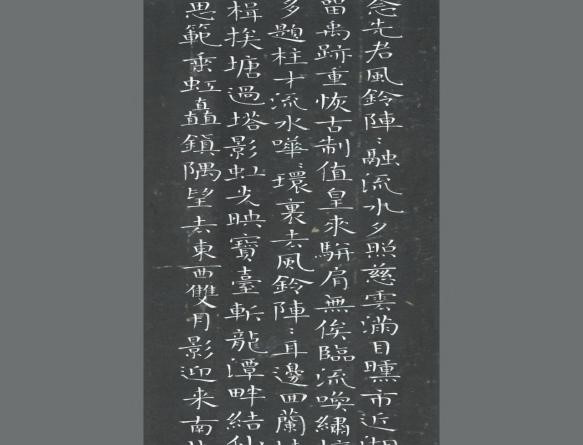 念先君風鈴陣〻融流水夕照慈雲滿目曛市近湖
留禹跡重恢古制值皇來駢肩無俟臨流喚繡
多題柱才流水嘩〻環裏去風鈴陣〻耳邊回蘭
楫挨塘過塔影虹光映寶臺斬龍潭畔結
思範垂虹矗鎮隅望去東西雙月影迎來南